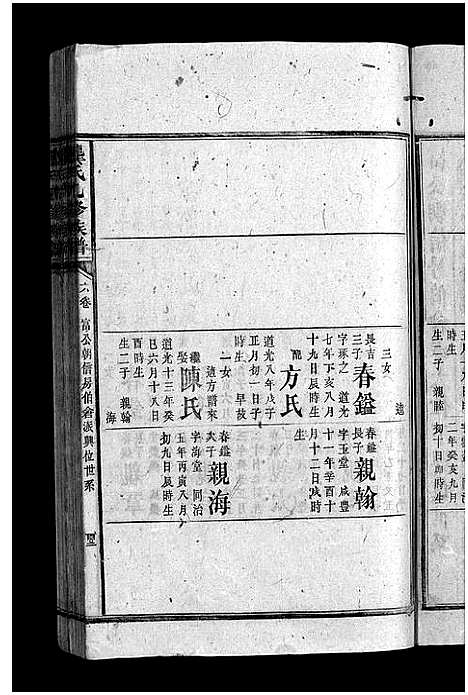 三女
適
長吉三子
春鎰
字琢之 道光
七年丁亥八月
十九日辰時生
配
方氏
生
道光八年戊子
正月初一日子
時生 早故
一女
適方譜來
繼娶
陳氏
道光十三年癸
巳六月十八日
酉時生
生二子 親翰
海
春鎰長子
親翰
字玉堂 咸豐
十一年辛酉十
月十二日戌時
生
春鎰次子
親海
字海堂 同治
五年丙寅八月
初九日辰時生
氏九修族譜
六卷
富公朝借房伯會派興位世系
生二子 親睦
二年癸亥九
初十日卯時